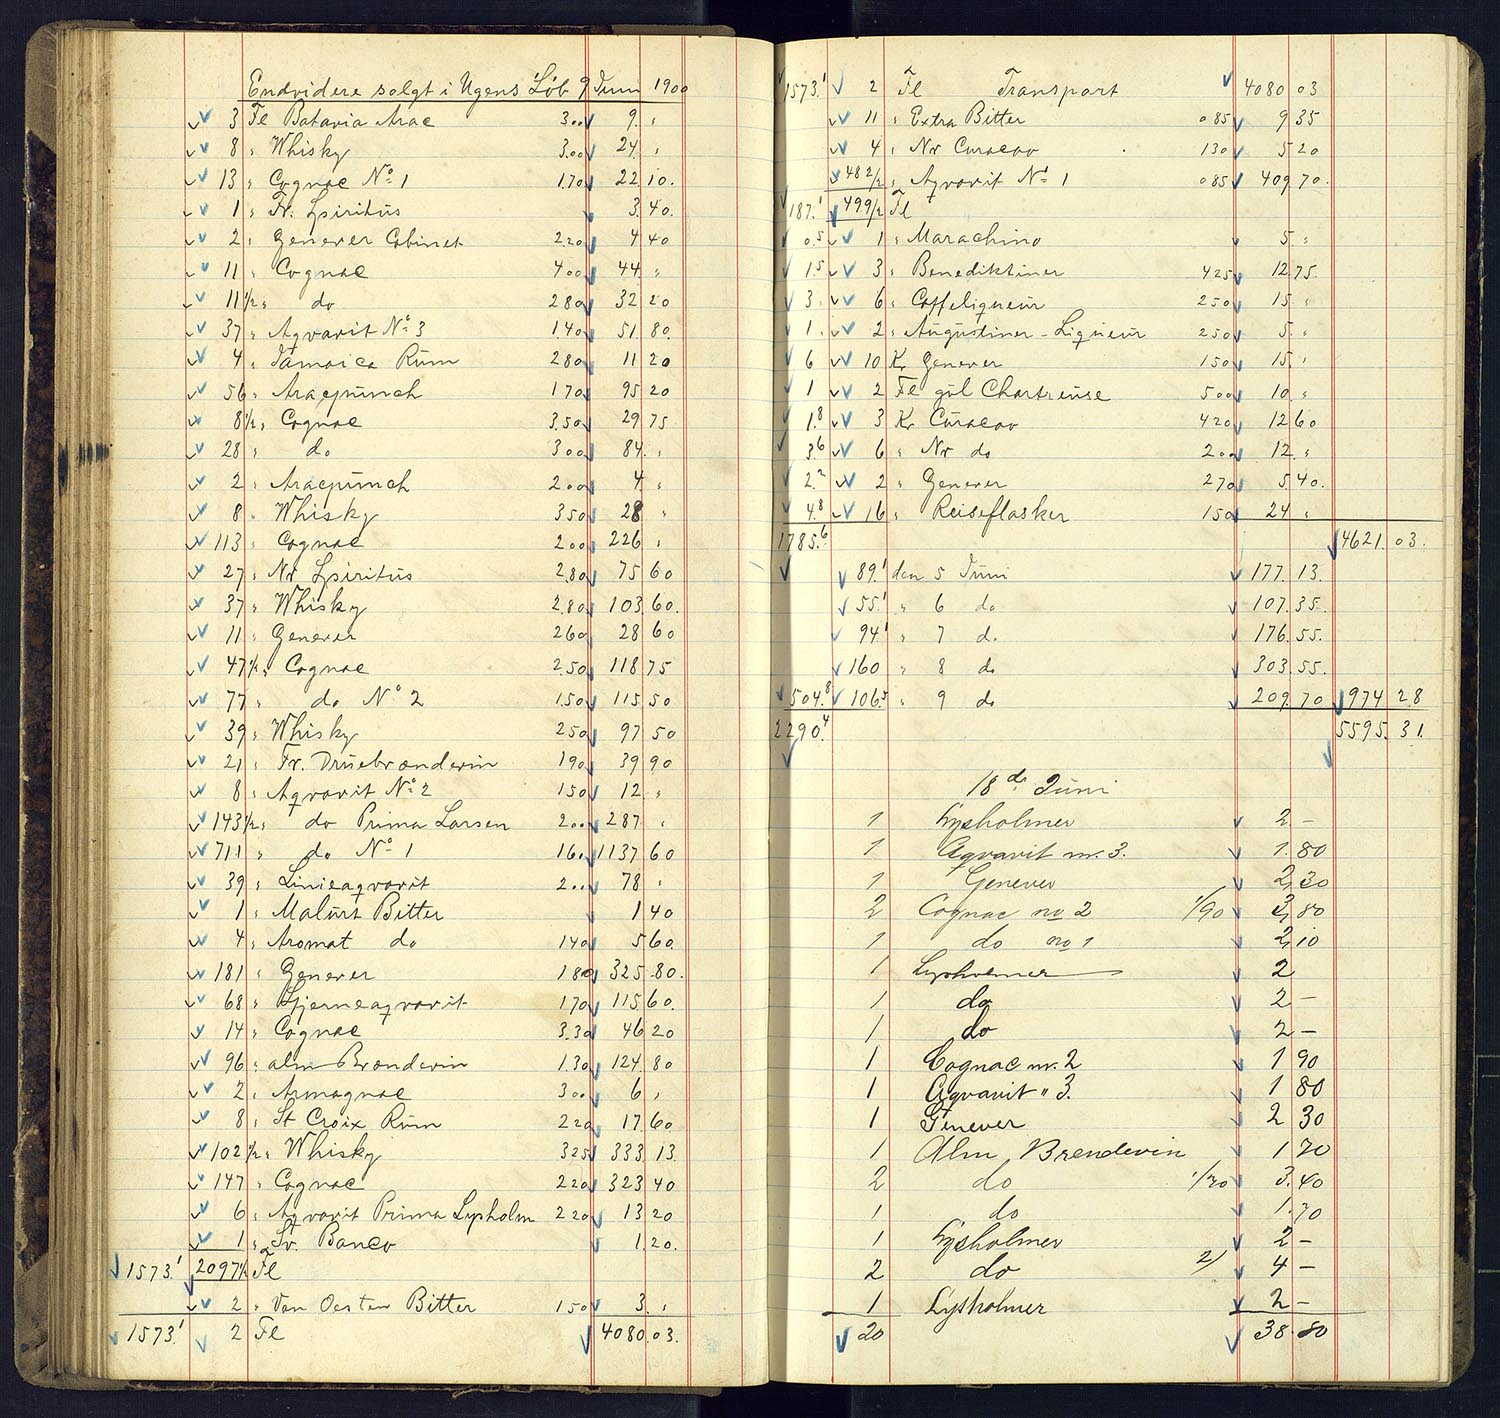 Endvidere solgt i Ugens Løb 9 Juni 1900
3 Fl Batavia Arac 3.00 9 "
8 " Whisky 3.00 24 "
13 " Cognac No 1 1.70 22 10.
1 " Fr. Spiritus 3.40.
2 " Genever Cabinet 2.20 4 40
11 " Cognac 4.00 44 "
11 1/2 " do 2.80 32 20
37 " Aqvavit No 3 1.40 51.80.
4 " Jamaica Rum 2.80 11 20
56 " Aracpunch 1.70 95 20
8 1/2 " Cognac 3.50 29 75
28 " do 3.00 84 "
2 " Aracpunch 2.00 4 "
8 " Whisky 3.50 28 "
113 " Cognac 2.00 226 "
27 " Nr Spiritus 2.80 75 60
37 " Whisky 2.80 103 60.
11 " Genever 2.60 28 60
47 1/2 " Cognac 2.50 118 75
77 " do No 2 1.50 115 50
39 " Whisky 2.50 97 50
21 " Fr. Druebrændevin 1.90 39 90
8 " Aqvavit No 2 1.50 12 "
143 1/2 " do Prima Larsen 2.00 287 "
711 " do No 1 1.60 1137 60
39 " Linieaqvavit 2.00 78 "
1 " Malurt Bitter 1 40
4 " Aromat do 1.40 5 60.
181 " Genever 1.80 325.80.
68 " Stjerneaqvavit 1.70 115 60.
14 " Cognac 3.30 46 20
96 " alm Brændevin 1.30 124.80
2 " Armagnac 3.00 6 "
8 " St Croix Rum 2.20 17.60
102 1/2 " Whisky 3.25 333 13
147 " Cognac 2.20 323 40
6 " Aqvavit Prima Lysholm 2.20 13 20
1 " Sv. Banco 1.20.
1573.1 2097 1/2 Fl
2 " Van Oosten Bitter 1.50 3 "
1573.1 2 Fl 4080.03.
1573.1 2 Fl Transport 4080 03
11 " Extra Bitter 0.85 9 35
4 " Nr Curacao 1.30 5 20
482 1/2 " Aqvavit No 1 0.85 409 70.
187.1 499 1/2 Fl
0.5 1 " Marachino 5 "
1.5 3 " Benediktiner 4.25 12.75
3 6 " Caffeliqueur 2.50 15 "
1 2 " Augustiner-Liqueur 2.50 5 "
6 10 Kr Genever 1.50 15 "
1 2 Fl gul Chartreuse 5.00 10 "
1.8 3 Kr Curacao 4.20 12 60
3.6 6 " Nr do 2.00 12 "
2.2 2 " Genever 2.70 5.40.
4.8 16 " Reiseflasker 1.50 24 "
1785.6 4621.03.
89.1 den 5 Juni 177.13.
55.1 " 6 do 107.35.
94.1 " 7 do 176.55.
160 " 8 do 303.55.
504.8 106.5 " 9 do 209.70 974 28
2290.4 5595.31.
18 de Juni
1 Lysholmer 2 -
1 Aqvavit nr. 3. 1.80
1 Genever 2.30
2 Cognac no 2 1/90 3,80
1 do no 1 2,10
1 Lysholmer 2
1 do 2 -
1 do 2 -
1 Cognac nr. 2 1 90
1 Aqvavit " 3. 1 80
1 Genever 2 30
1 Alm Brændevin 1 70
2 do 1/70 3.40
1 do 1.70
1 Lysholmer 2 -
2 do 2/ 4 -
1 Lysholmer 2 -
20 38.80